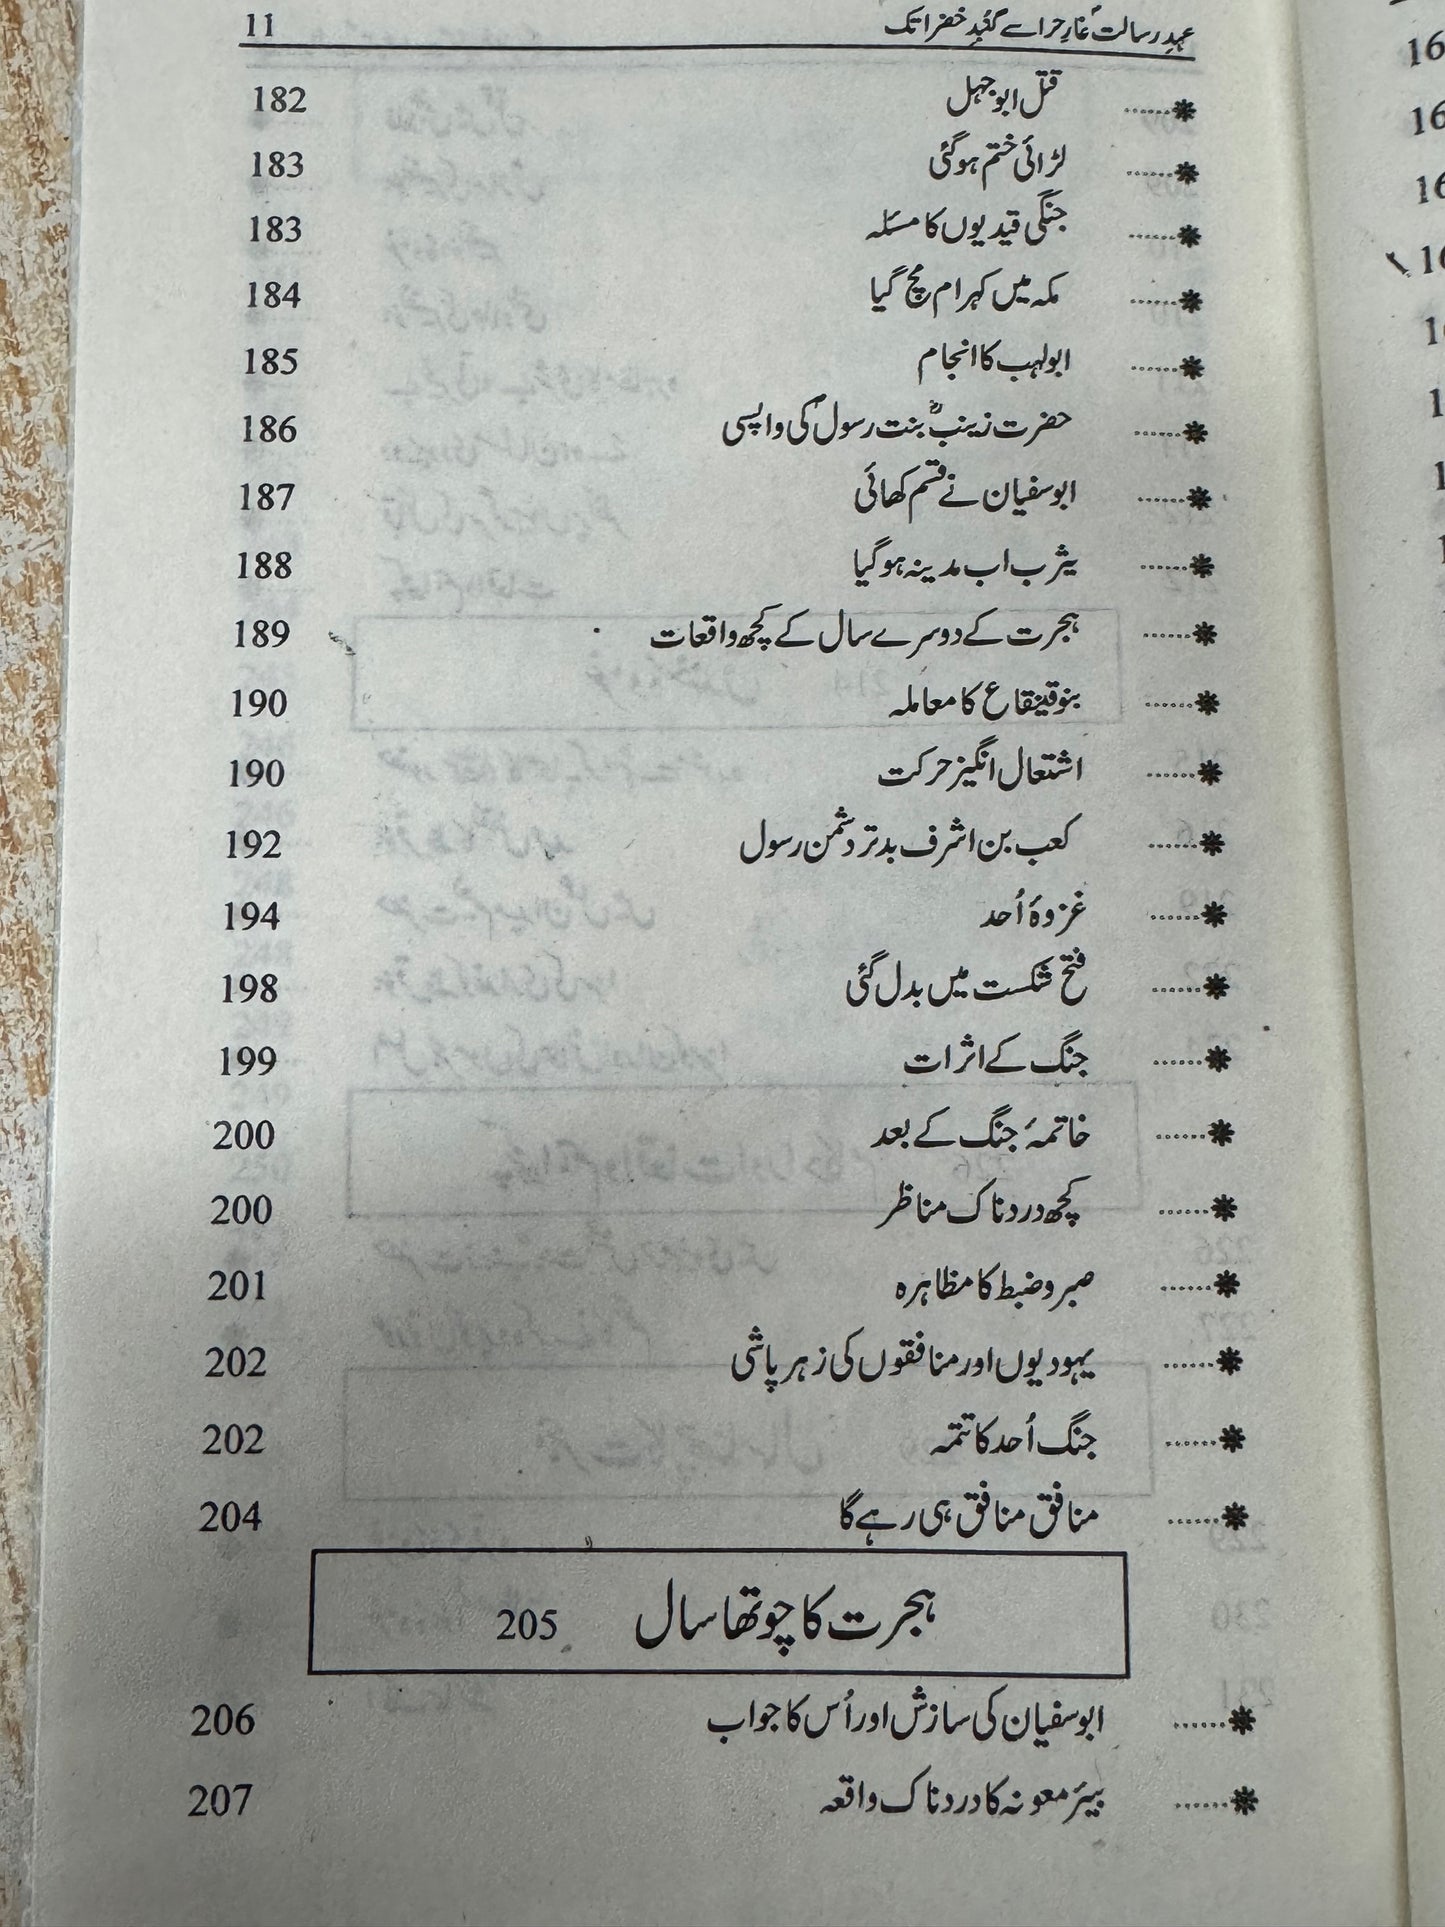 عہدِ رسالتؐ غارِ حرا سے گنبدِ خضرا تک 11
❋...... قتل ابو جہل 182
❋...... لڑائی ختم ہوگئی 183
❋...... جنگی قیدیوں کا مسئلہ 183
❋...... مکہ میں کہرام مچ گیا 184
❋...... ابولہب کا انجام 185
❋...... حضرت زینبؓ بنت رسولؐ کی واپسی 186
❋...... ابوسفیان نے قسم کھائی 187
❋...... یثرب اب مدینہ ہوگیا 188
❋...... ہجرت کے دوسرے سال کے کچھ واقعات 189
❋...... بنوقینقاع کا معاملہ 190
❋...... اشتعال انگیز حرکت 190
❋...... کعب بن اشرف بدتر دشمن رسول 192
❋...... غزوۂ اُحد 194
❋...... فتح شکست میں بدل گئی 198
❋...... جنگ کے اثرات 199
❋...... خاتمۂ جنگ کے بعد 200
❋...... کچھ دردناک مناظر 200
❋...... صبر وضبط کا مظاہرہ 201
❋...... یہودیوں اور منافقوں کی زہر پاشی 202
❋...... جنگ اُحد کا تتمہ 202
❋...... منافق منافق ہی رہے گا 204
ہجرت کا چوتھا سال 205
❋...... ابوسفیان کی سازش اور اُس کا جواب 206
❋...... بیئر معونہ کا دردناک واقعہ 207